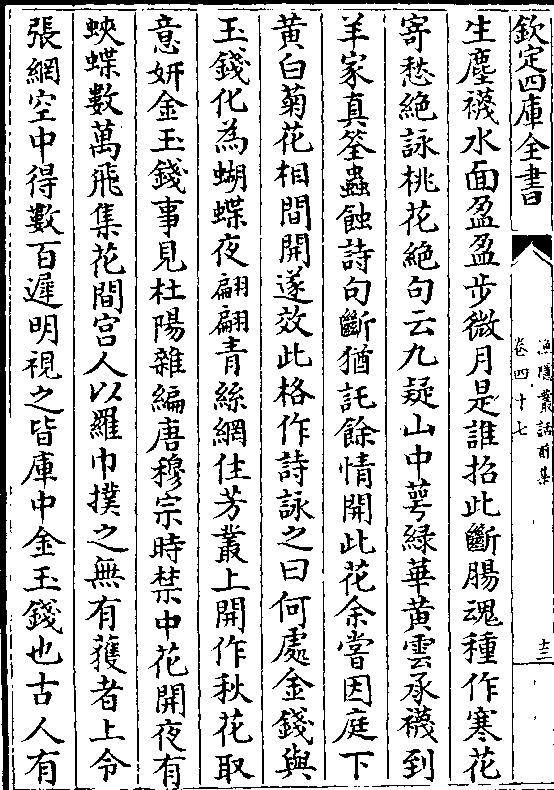 欽定四庫全書
漁隱叢話前集
卷四十七
十三
生塵襪水面盈盈步微月是誰招此斷腸魂種作寒花
寄愁絶詠桃花絶句云九疑山中萼緑華黄雲承襪到
羊家真筌蟲蝕詩句斷猶託餘情開此花余嘗因庭下
黄白菊花相間開遂效此格作詩詠之曰何處金錢與
玉錢化為蝴蝶夜翩翩青絲網住芳叢上開作秋花取
意妍金玉錢事見杜陽雜編唐穆宗時禁中花開夜有
蛺蝶數萬飛集花間宫人以羅巾撲之無有獲者上令
張網空中得數百遲明視之皆庫中金玉錢也古人有